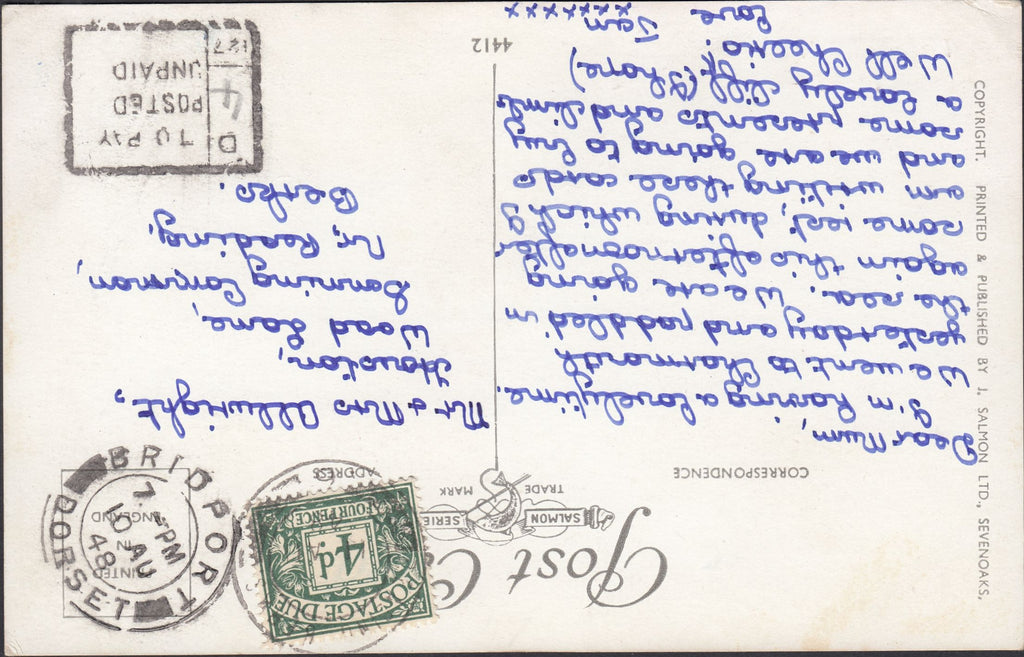 Post
SALMON SERIE
TRADE MARK
CORRESPONDENCE
ADDRESS
Dear Mum,
I'm having a lovely time.
We went to Charmouth
yesterday and paddled in
the sea. We are going
again this afternoon after
some rest, during which I
am writing these cards
and we are going to buy
some presents and climb
a lovely cliff. (I hope)
Well Cheerio.
Love
Jen
xxxxxxxx
4412
Mr & Mrs Allwright,
Howston,
Wood Lane,
Sonning Common,
Nr. Reading,
Berks.
COPYRIGHT. PRINTED & PUBLISHED BY J. SALMON LTD., SEVENOAKS,
PRINTED
IN
ENGLAND
BRIDPORT
DORSET
7. PM
10 AU
48
POSTAGE DUE
4d
FOUR PENCE
TO PAY
POSTED
UNPAID
4 D.
127